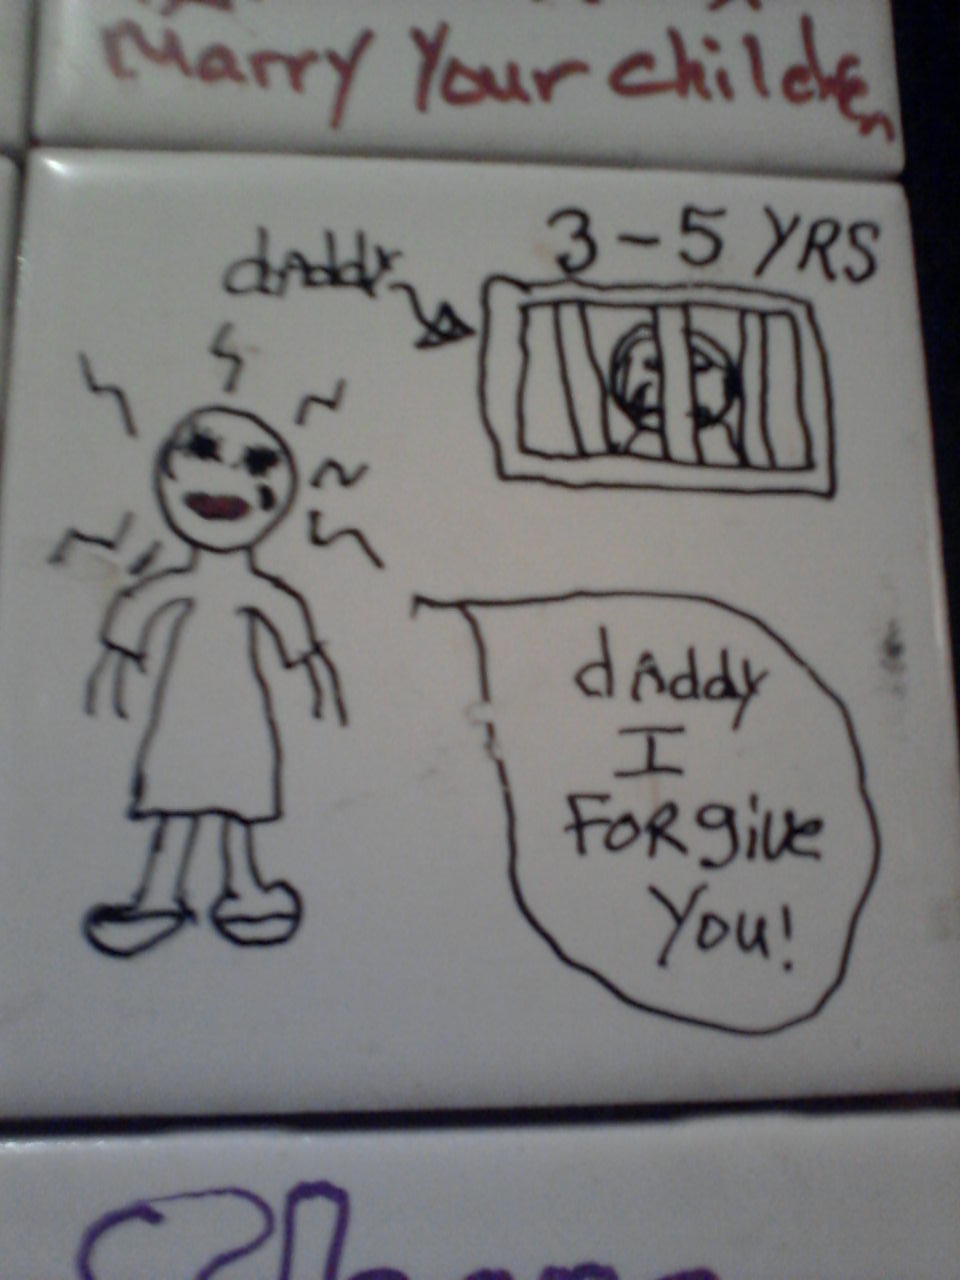 Marry Your children
daddy
3-5 YRS
daddy
I
FORgive
You!